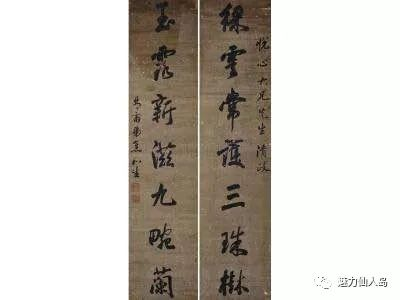 悦心大兄先生清政
綵雲常護三珠樹
玉露新滋九畹蘭
魅力仙人岛